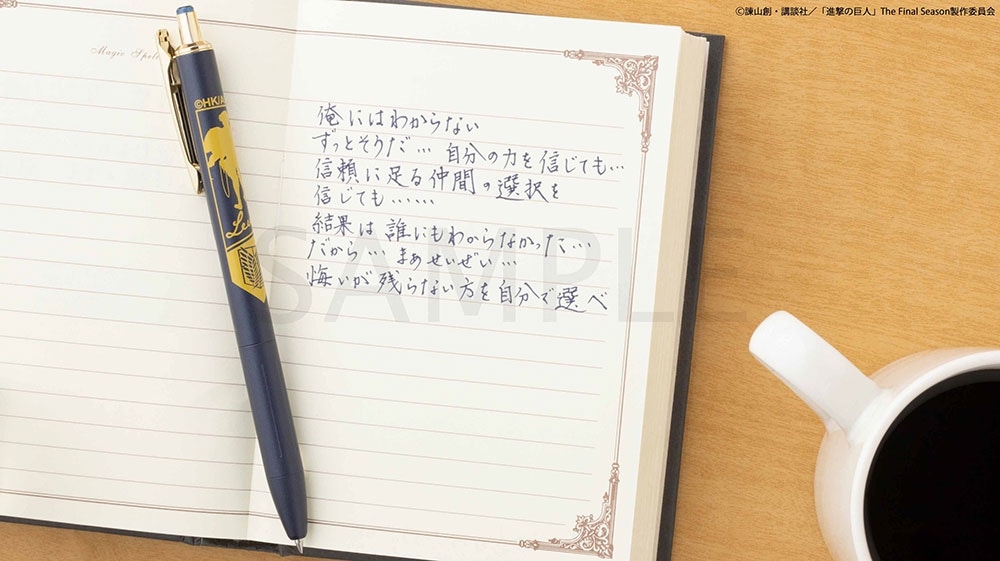 ©諫山創・講談社／「進撃の巨人」The Final Season製作委員会
Magic Spell
©HK/A
Le
俺にはわからない
ずっとそうだ… 自分の力を信じても…
信頼に足る仲間の選択を
信じても……
結果は誰にもわからなかった…
だから… まぁせいぜい…
悔いが残らない方を自分で選べ
SAMPLE